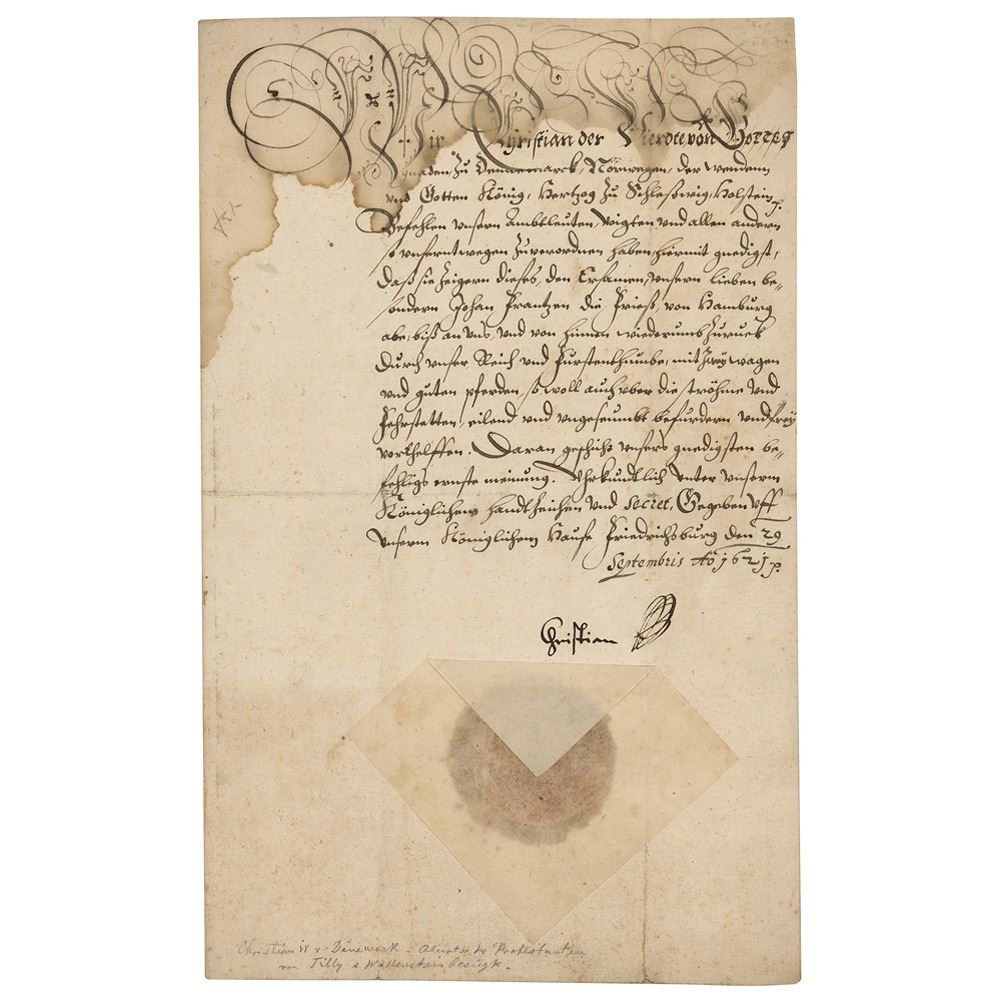 Wir Christian der Vierdte von Gottes
gnaden, Zu Dennemarck, Norwegen, der Wenden
vnd Gotten König, Hertzog Zu Schleßwig, Holstein p.
Befehlen vnsern Ambtleuten, Vögten vnd allen andern
so vnserntwegen Zuverordnen haben, hiermit gnedigst,
Daß sie Zeigern dieses, den Ersamen, vnsern lieben be-
sondern Johan Frantzen die Frieß, von Hamburg
abe, biß an vns, vnd von hinnen wiederumb Zuruck
Durch vnser Reich vnd Furstenthumbe, mit Zwey wagen
vnd guten pferden, so woll auch vber die ströhme vnd
Fehrstetten, eilend vnd vngeseumbt befurdern vnd frey
verhelffen. Daran geschicht vnsers gnedigsten be-
fehligs ernste meinung. Vhrkundtlich vnter vnserm
Königlichem handtZeichen vnd Secret, Gegeben vff
vnserm Königlichem Hause Friedrichsburg den 29
Septembris Aō 1621 p.
Christian
Christian IV v. Dänemark -
von Tilly & Wallenstein besiegt.